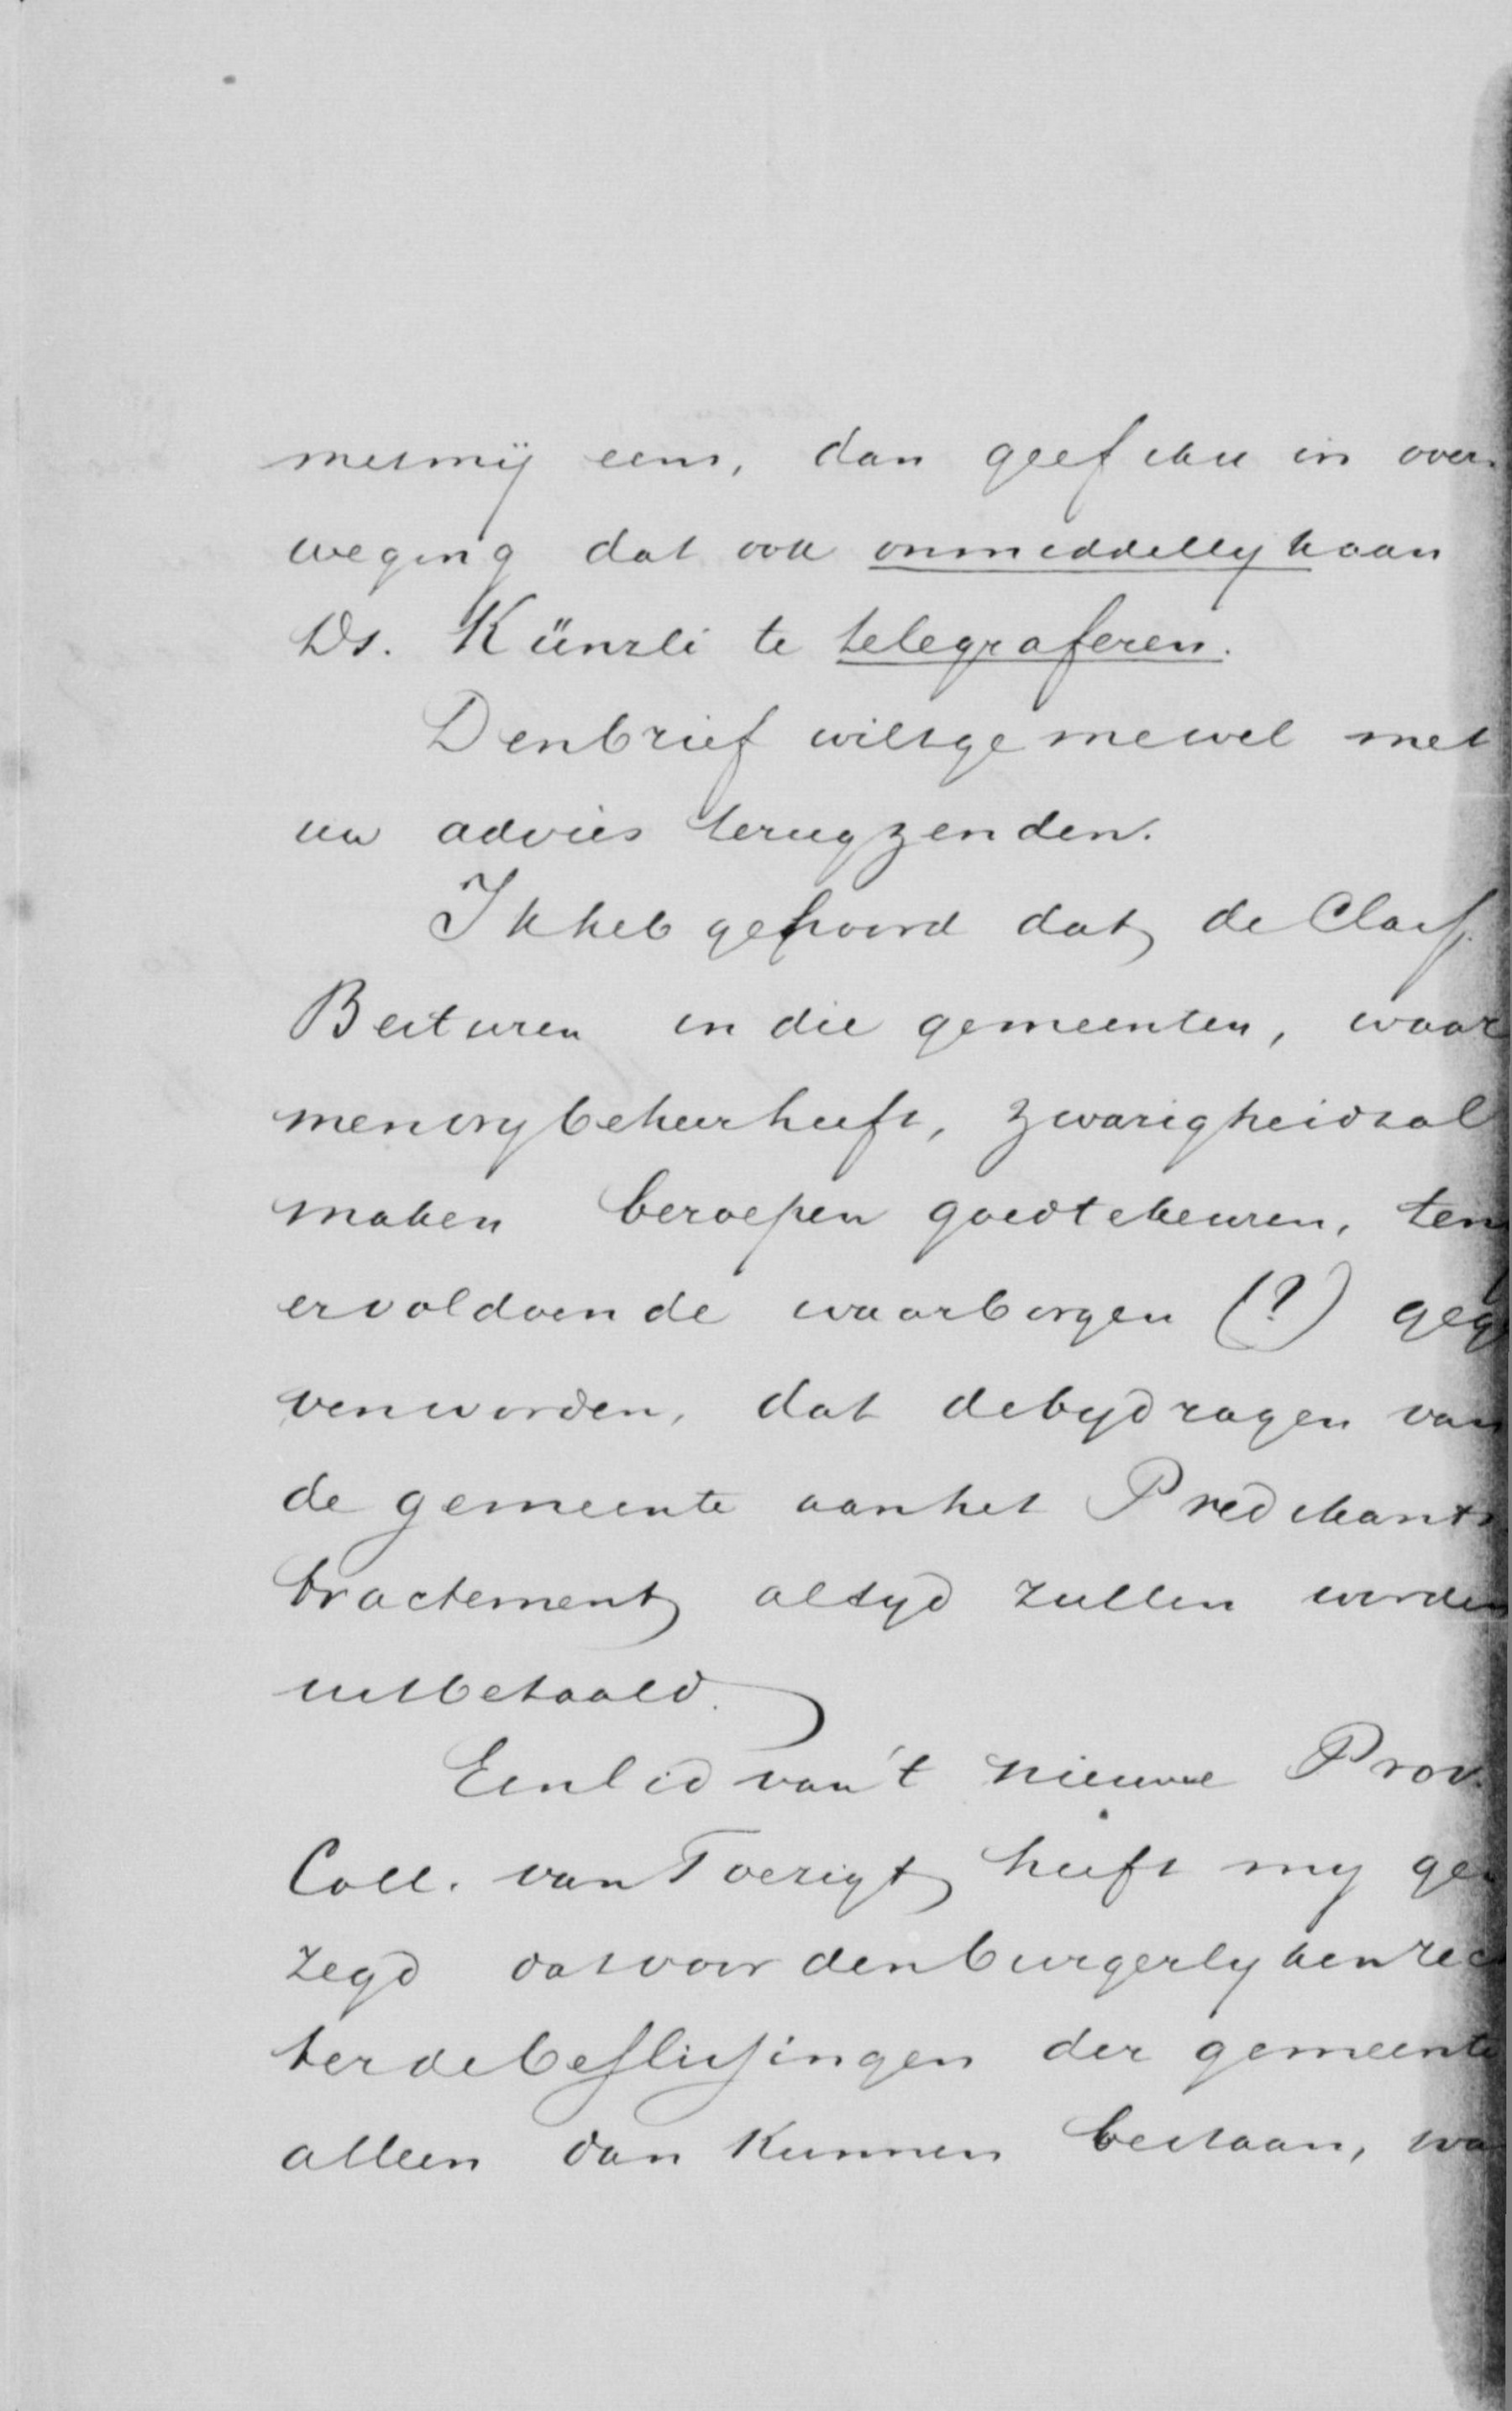 met mij eens, dan geef ik u in over-
weging dat ook onmiddellyk aan
Ds. Künzli te telegraferen.
Den brief wilt ge me wel met
uw advies terugzenden.
Ik heb gehoord dat de Class.
Besturen in die gemeenten, waar
men vry beheer heeft, zwarigheid zal
maken beroepen goed te keuren, ten
er voldoende waarborgen (?) geg
ven worden, dat de bydragen van
de gemeente aan het Predikants
tractement altyd zullen worden
uitbetaald.
Een lid van 't nieuwe Prov.
Coll. van Toezigt heeft my ge
zegd dat voor den burgerlyken rec
ter de beslissingen der gemeente
alleen dan kunnen bestaan, wa